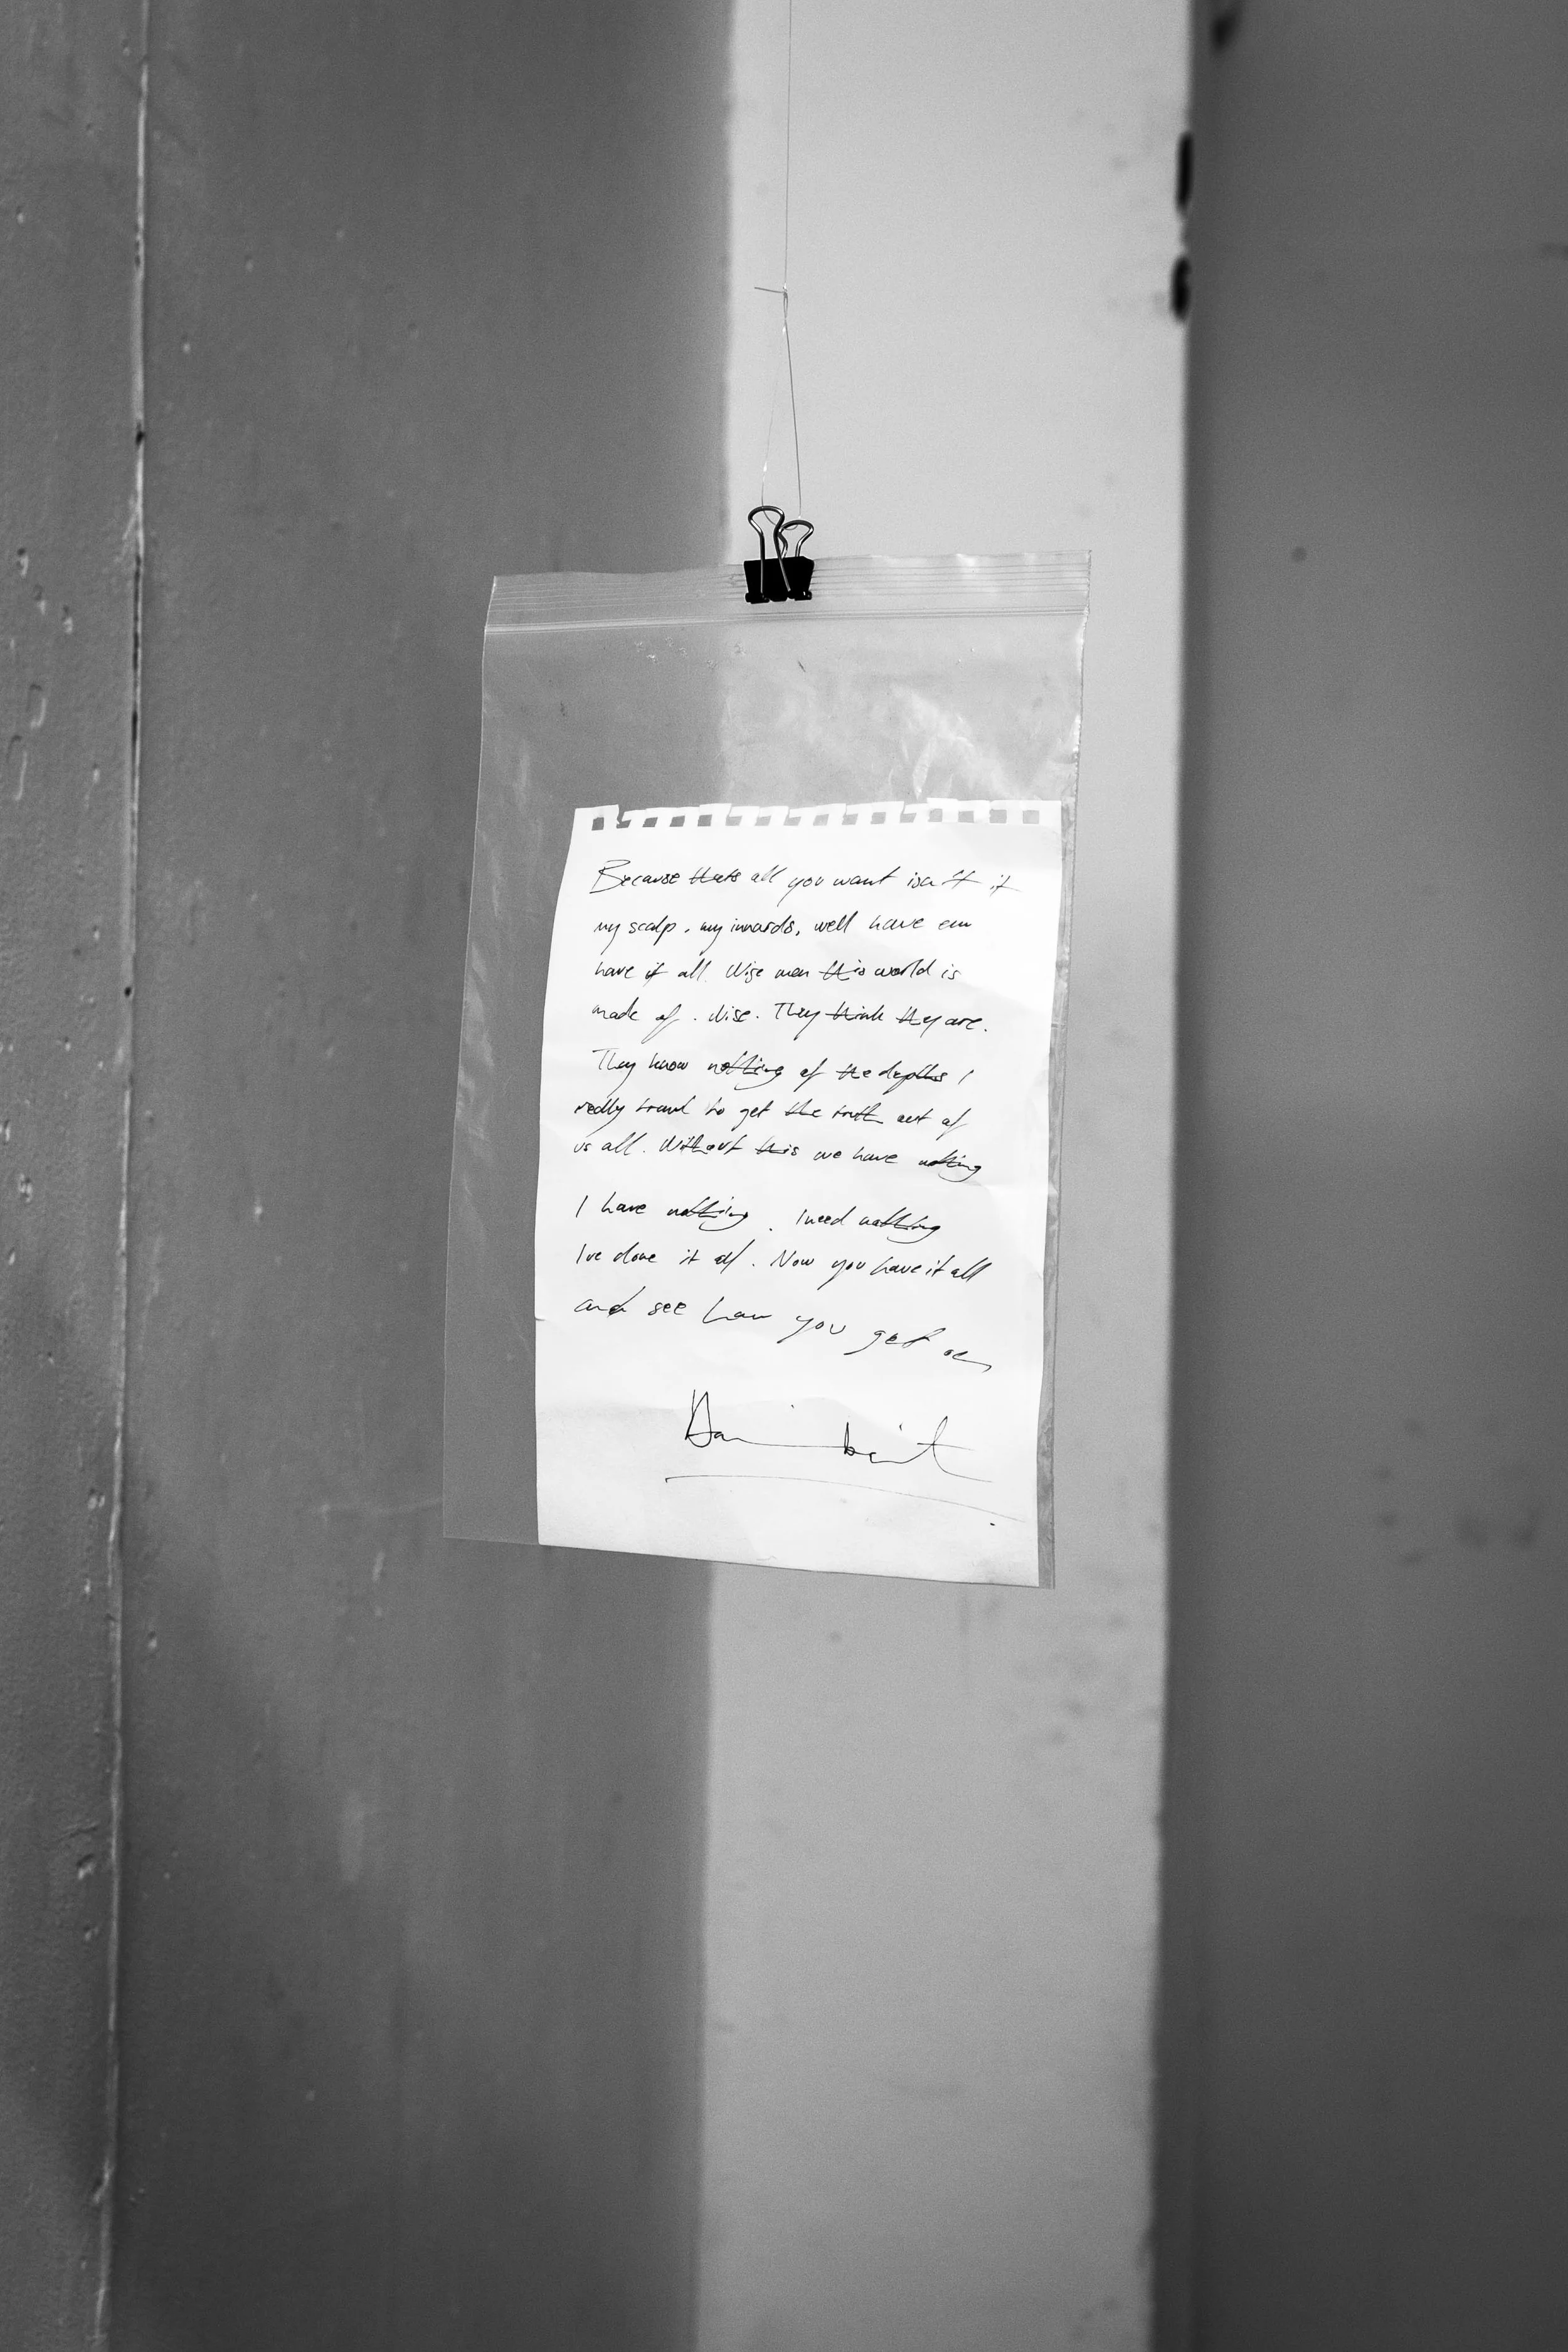 Because thats all you want isn't it
my scalp, my innards, well have em
have it all. Wise men this world is
made of. Wise. They think they are.
They know nothing of the depths I
really trawl to get the truth out of
us all. Without this we have nothing
I have nothing. I need nothing
Ive done it all. Now you have it all
and see how you get on